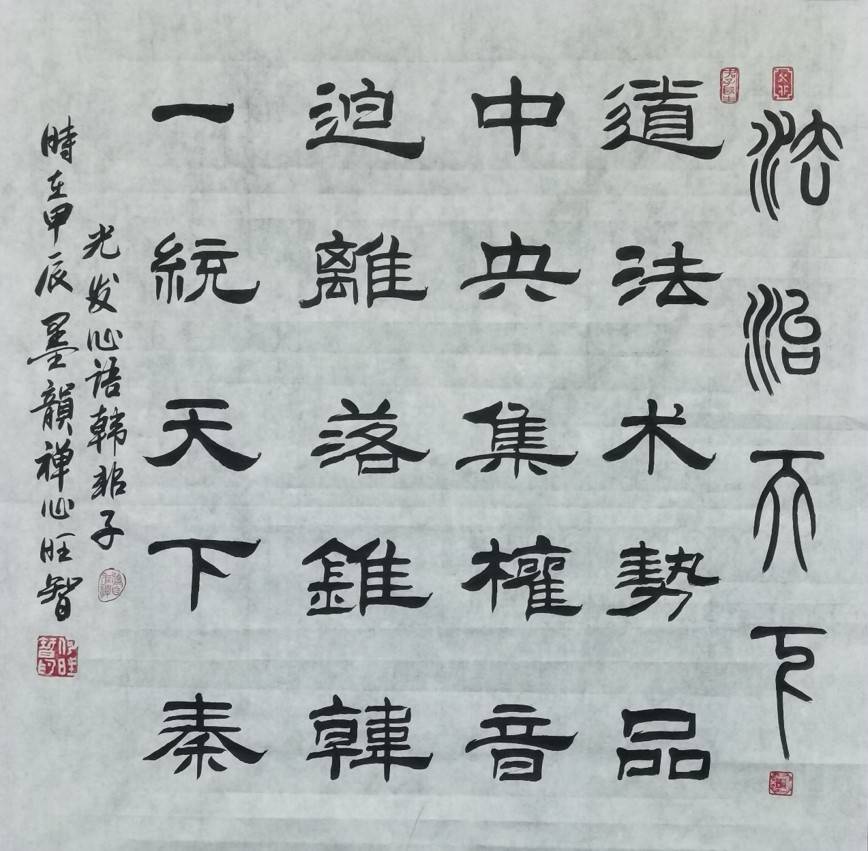 法治天下
道法术勢品
中央集權音
迫離落錐韓
一統天下秦
光发心语韓非子
時在甲辰墨韻禅心旺智